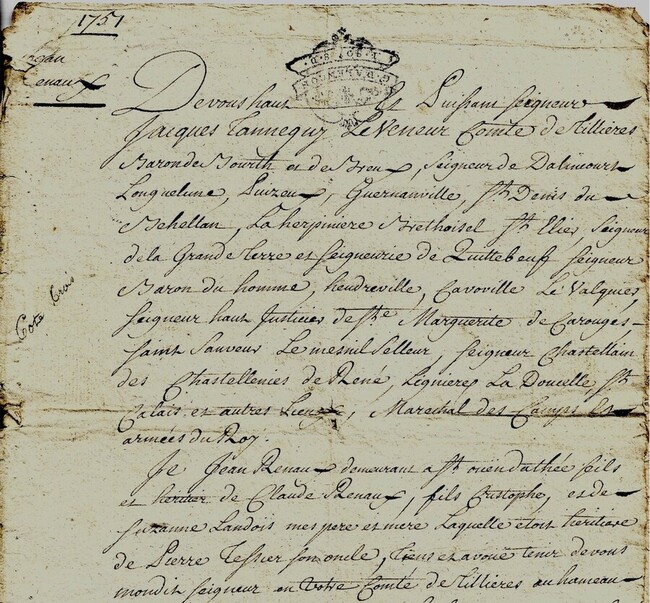 1751
Renaux
De vous haut et Puissant Seigneur
Jacques Tanneguy Le Veneur Comte de Tillières
Baron de Bourth et de Breux, Seigneur de Dalincourt
Longuelune, Puizeux, Guernanville, St. Denis du
Behellan, La herpiniere Brethoisel St. Elier Seigneur
de la Grande Terre et Seigneurie de Quittebeuf Seigneur
Baron du homme, heudreville, Cavoville Le Valques,
Seigneur haut Justicier de Ste Marguerite de Carouges
Saint Sauveur Le mesnil Selleur Seigneur Chastellain
des Chastellenies de René, Lignieres La Doucelle St.
Calais, et autres Lieux, Marechal des Camps Et
armées du Roy.
Je Jean Renaux demeurant a St. ouen d'athée fils
et heritier de Claude Renaux, fils Cristophe, et de
Suzanne Landois mes pere et mere Laquelle etoit héritiere
de Pierre Tessier son oncle, Tiens et avoüe tenir de vous
mondit Seigneur en votre Comté de Tillieres au hameau
Cote trois